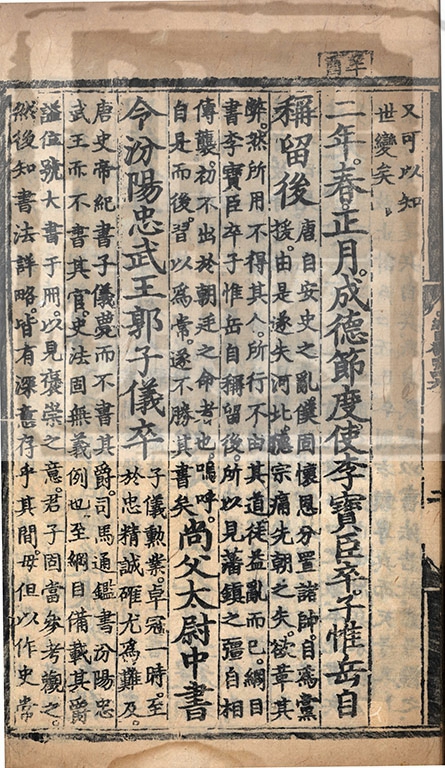 辛酉
又可以知
世變矣
二年。春。正月。成德節度使李寶臣卒。子惟岳自
稱留後
唐自安史之亂。僕固懷恩分置諸帥。自爲黨
援。由是遂失河北。德宗痛先朝之失。欲革其
弊。然所用不得其人。所行不由其道。徒益亂而已。綱目
書李寶臣卒子惟岳自稱留後。所以見藩鎮之彊。自相
傳襲。初不出於朝廷之命者也。嗚呼。
自是而後。習以爲常。遂不勝其書矣。
尚父太尉中書
令汾陽忠武王郭子儀卒
子儀勳業。卓冠一時。至
於忠精誠確。尤爲難及。
唐史帝紀書子儀薨而不書其爵。司馬通鑑書汾陽忠
武王而不書其官。史法固無義例也。至綱目備載其爵
謚位號。大書于冊。以見褒崇之意。君子固當參考觀之。
然後知書法詳略。皆有深意存乎其間。毋但以作史常